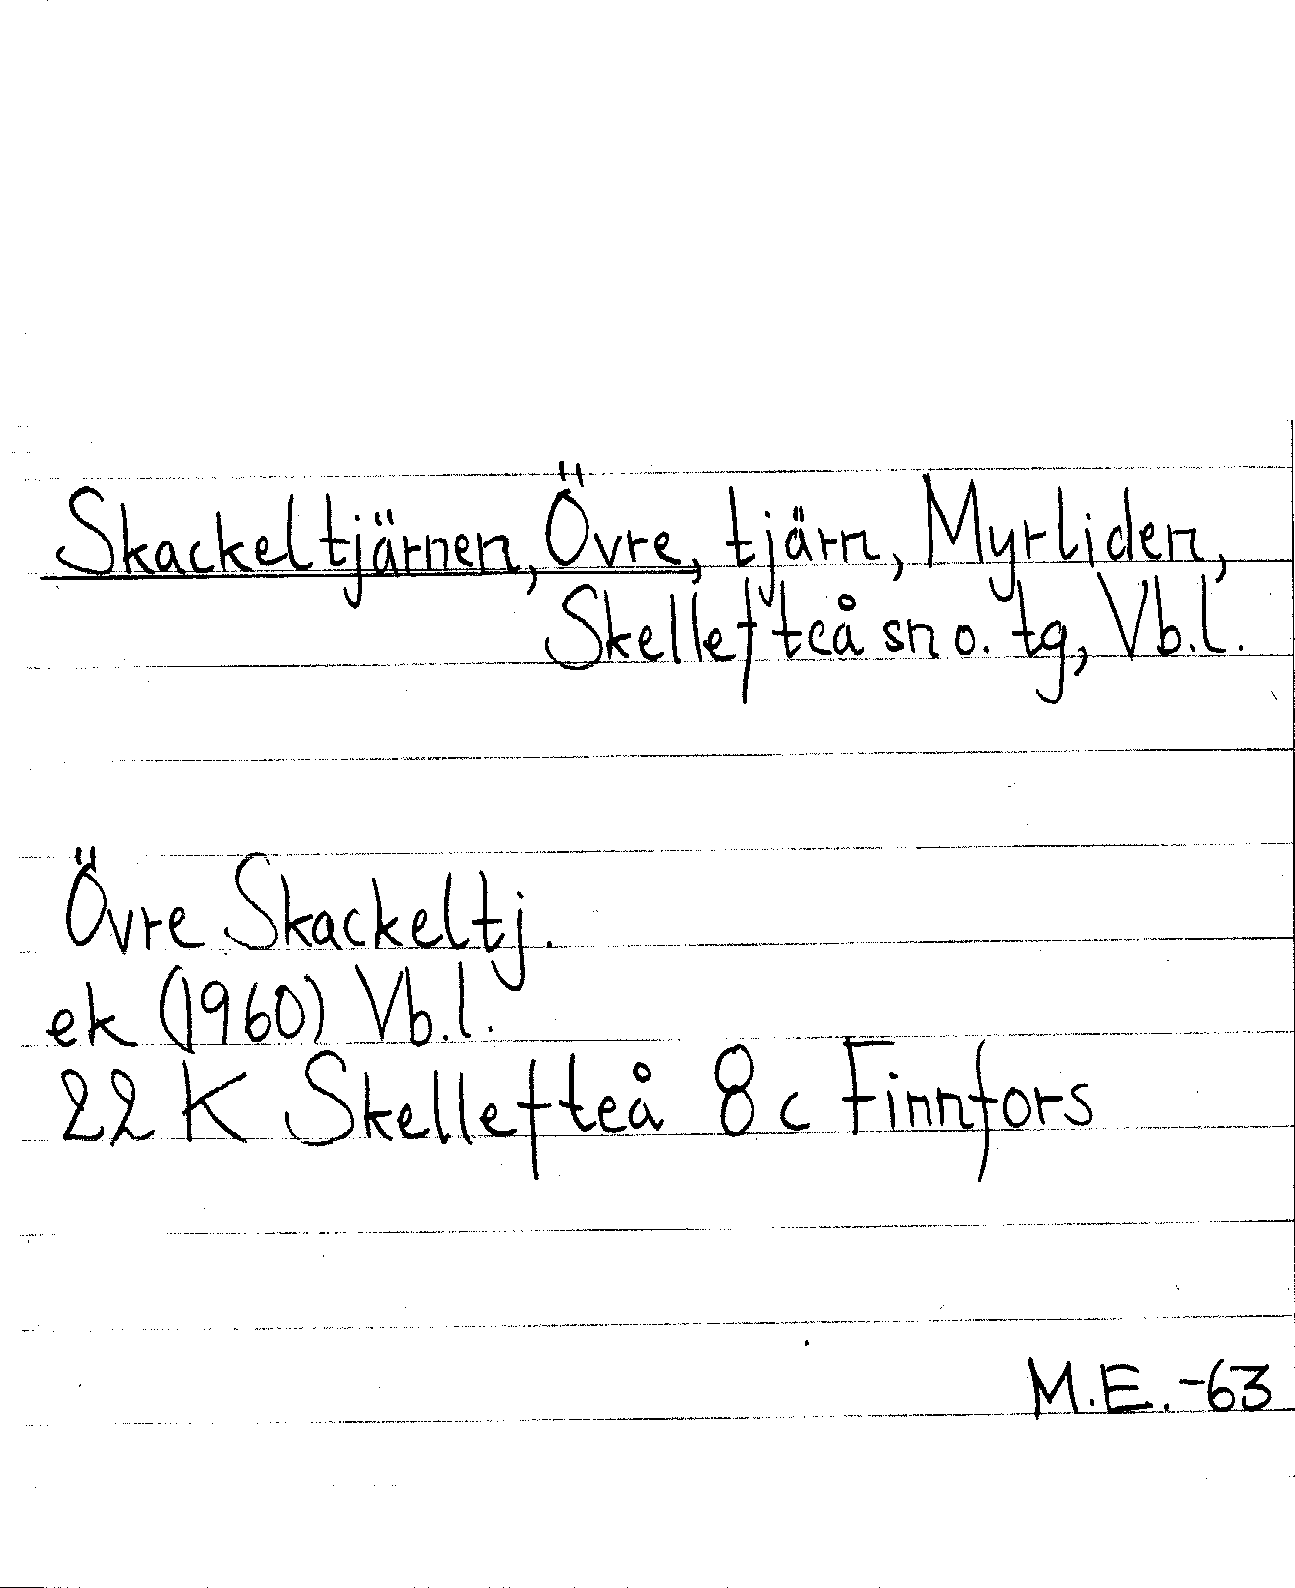 Skackeltjärnen, Övre, tjärn, Myrliden,
Skellefteå sn o. tg, Vb.l.
Övre Skackeltj.
ek (1960) Vb.l.
22 K Skellefteå 8 c Finnfors
M.E. -63